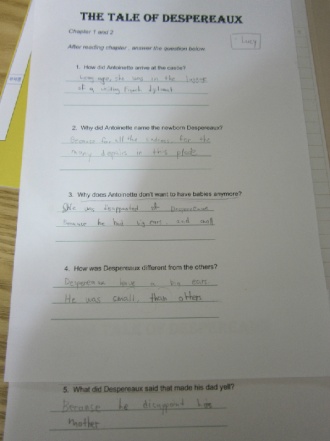 THE TALE OF DESPEREAUX
Chapter 1 and 2
Lucy
After reading chapter , answer the question below.
1. How did Antoinette arrive at the castle?
Long ago, she was in the luggage
of a visiting French diplomat
2. Why did Antoinette name the newborn Despereaux?
Because for all the sadness for the
many despairs in this place
3. Why does Antoinette don't want to have babies anymore?
She was disappointed of Despereaux
because he had big ears, and small
4. How was Despereaux different from the others?
Despereaux have a big ears.
He was small, than other
5. What did Despereaux said that made his dad yell?
because he disappoint his
mother